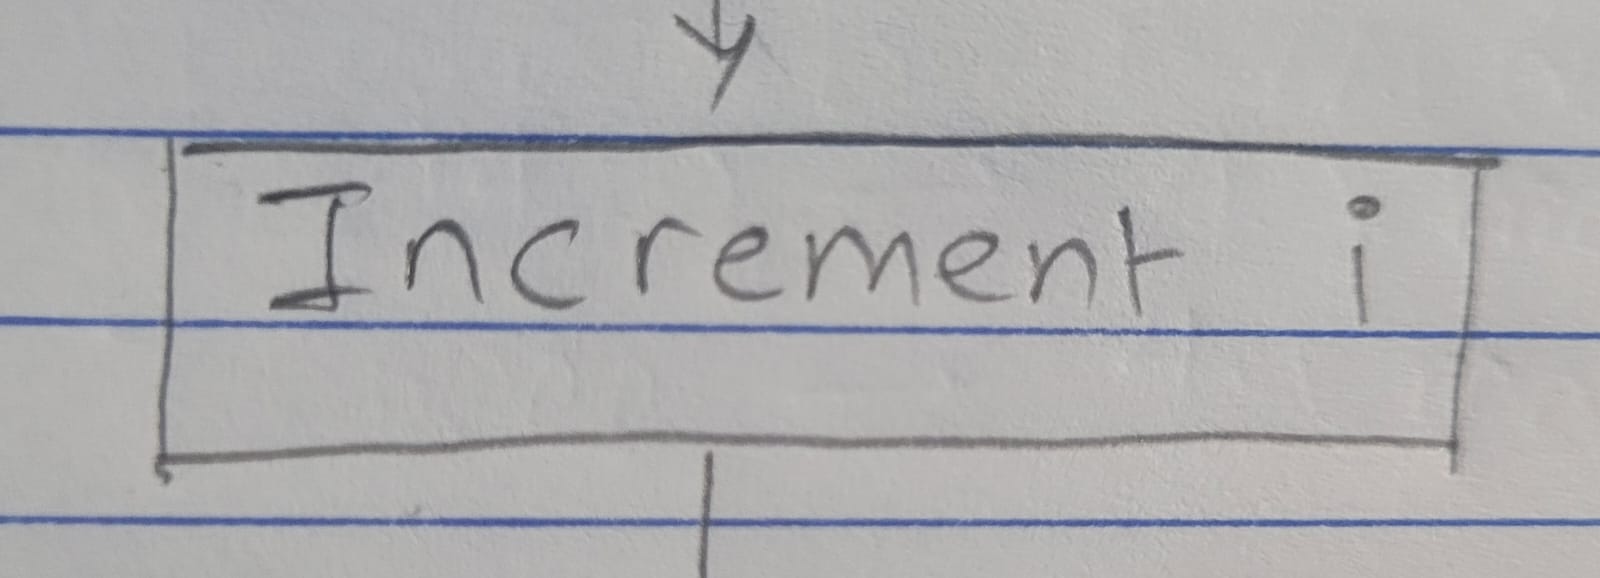 Increment i